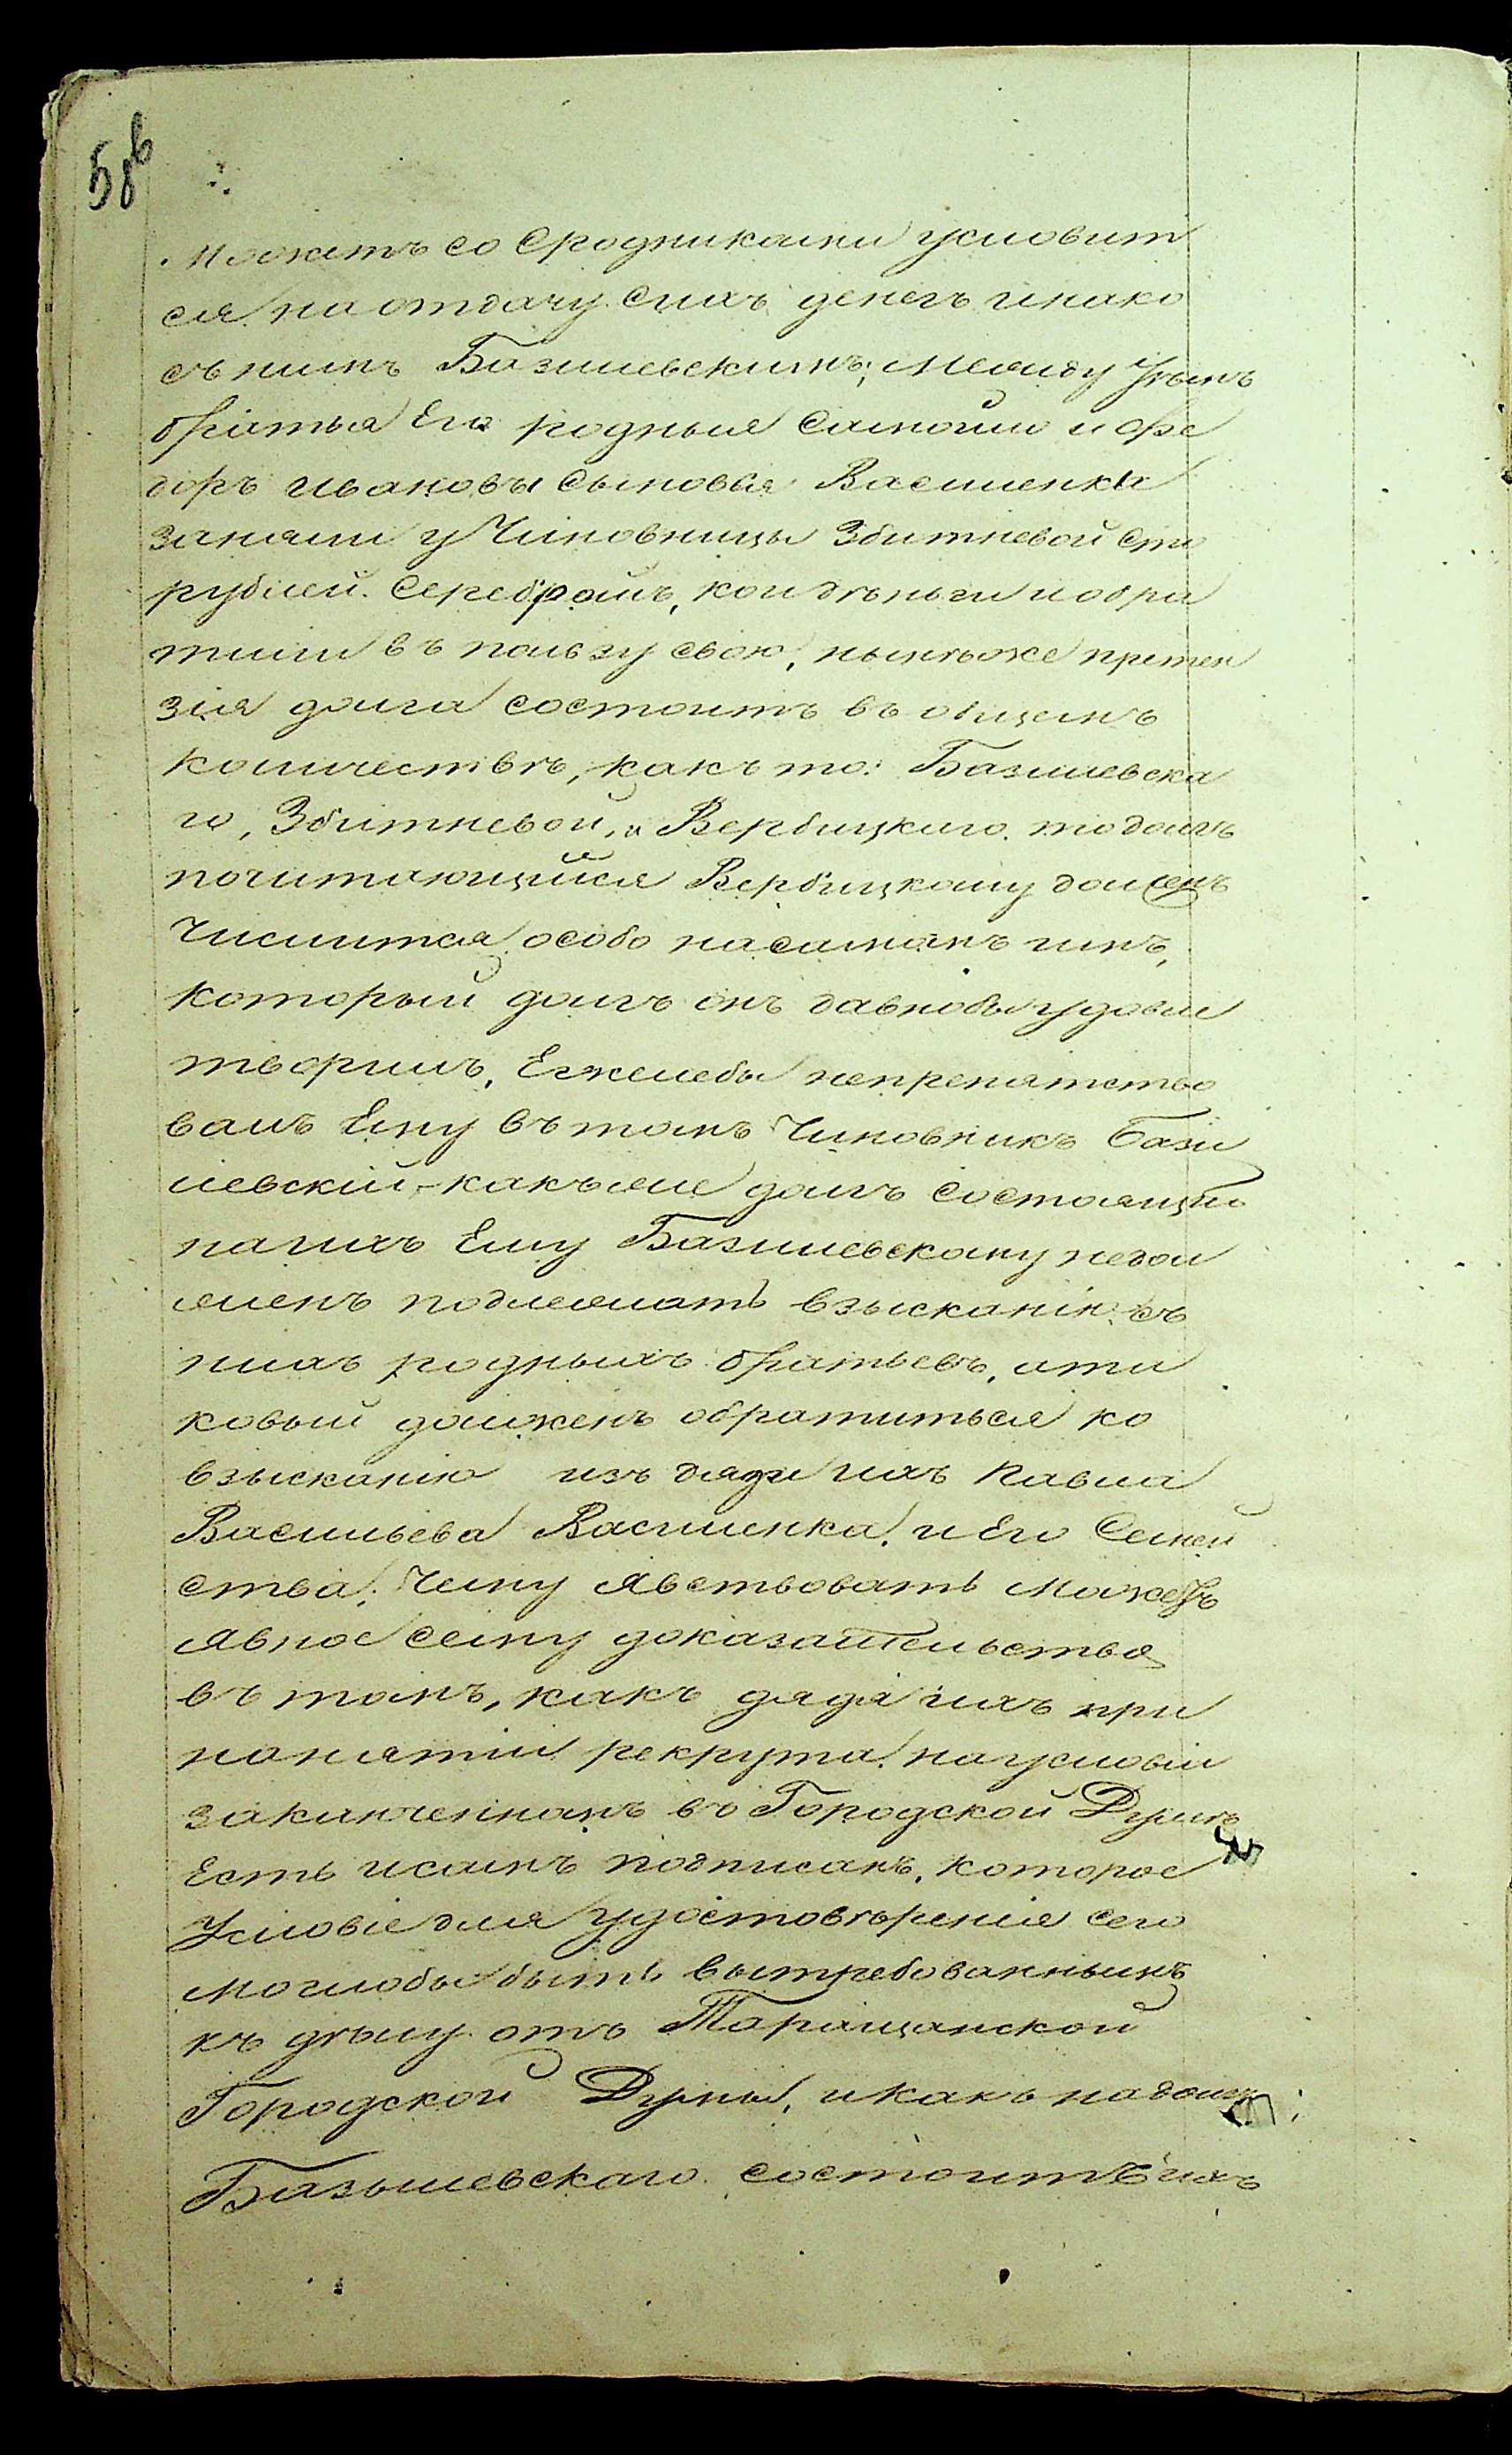 58в
Можетъ со Сродниками условит
ся на отдачу сихъ денегъ инако
съ нимъ Базилевскимъ; между чѣмъ
братья Его родныя Самойло и Фе
доръ Ивановы Сыновья Василенки
заняли у Чиновницы Збитневой сто
рублей Серебромъ, кои дѣньги и обра
тили въ пользу свою, нынѣ же претен
зія долга состоитъ въ общемъ
количествѣ, какъ то: Базилевска
го, Збитневой, и Вербицкаго. то долгъ
почитающійся Вербицкому долженъ
Числится особо на самомъ имъ,
который долгъ онъ давно бы удовле
творилъ, Ежелебы непрепятство
валъ Ему въ томъ Чиновникъ Бази
левскій, какъ же долгъ состоящій
на ихъ Ему Базилевскому недол
женъ подлежать взысканію съ
нихъ родныхъ братьевъ, а та
ковый долженъ обратиться ко
взысканію изъ дяди ихъ Павла
Васильева Василенка, и Его Семей
ства; Чему явствовать можетъ
явное сему доказательство
въ томъ, какъ дядя ихъ при
нонятіи рекрута, на условіи
заключенномъ въ Городской Думѣ
Есть и самъ подписанъ, которое
Условіе для удостовѣренія сего
моглобы быть вытребованнымъ
къ дѣлу отъ Таращанской
Городской Думы, и какъ на долгъ
Базылевскаго состоитъ ихъ